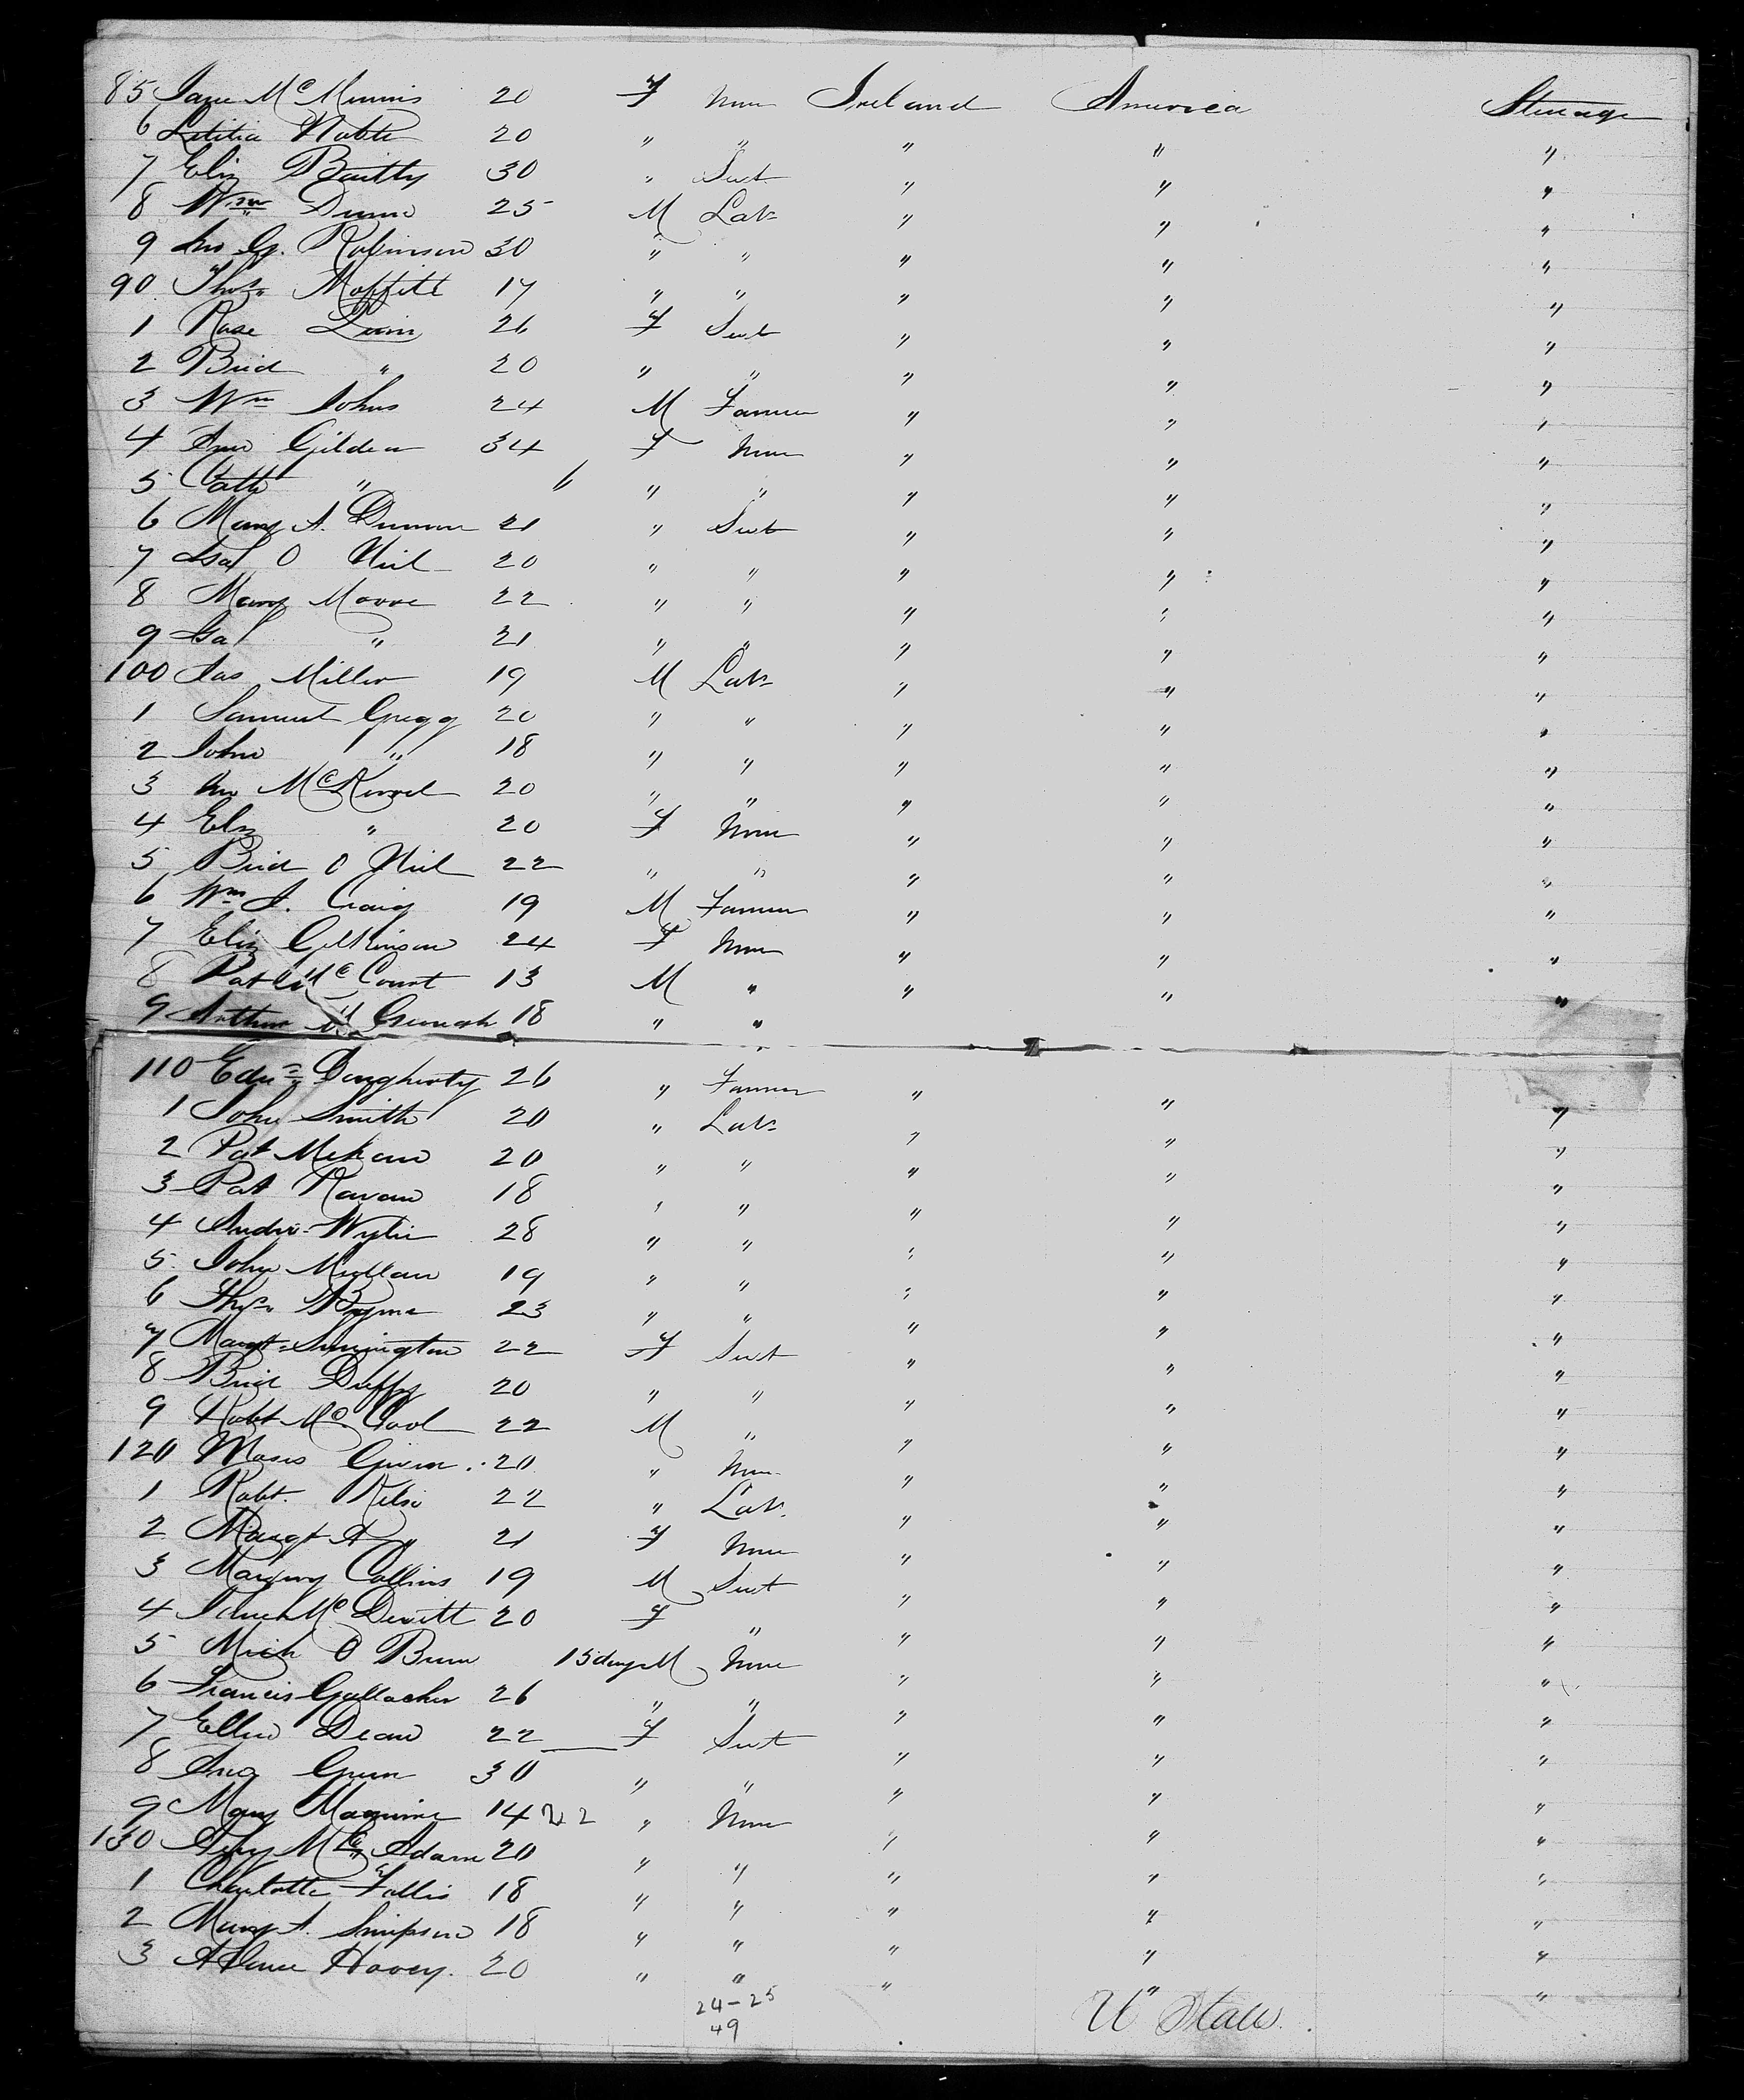 85 Jane McMinnis 20 F None Ireland America Steerage
6 Letitia Noble 20 " " " " "
7 Eliz Baitty 30 " Servt " " "
8 Wm Dunn 25 M Labr " " "
9 Jno G. Robinson 30 " " " " "
90 Thos Moffitt 17 " " " " "
1 Rose 26 F Servt " " "
2 Brid " 20 " " " " "
3 Wm Johns 24 M Farmer " " "
4 Ann Gildea 34 F None " " "
5 Cath " 6 " " " " "
6 Mary A. 21 " Servt " " "
7 Isal O Neil 20 " " " " "
8 Mary Moore 22 " " " " "
9 Isal " 21 " " " " "
100 Jas Miller 19 M Labr " " "
1 Samuel Gregg 20 " " " " "
2 John " 18 " " " " "
3 20 " " " " "
4 Eliz " 20 F None " " "
5 Brid O Neil 22 " " " " "
6 Wm J. Craig 19 M Farmer " " "
7 Eliz Gilkinson 24 F None " " "
8 Patk McCourt 13 M " " " "
9 Arthur 18 " "
110 Edwd Dougherty 26 " Farmer " " "
1 John Smith 20 " Labr " " "
2 Pat Mekan 20 " " " " "
3 Pat Ravan 18 " " " " "
4 Andw Wylie 28 " " " " "
5 John Mullan 19 " " " " "
6 Thos Byrne 23 " " " " "
7 Margt Simington 22 F Servt " " "
8 Brid Duffy 20 " " " " "
9 Robt McCool 22 M " " " "
120 Moses Given 20 " None " " "
1 Robt. Kelso 22 " Labr " " "
2 Margt A " 21 F None " " "
3 Margery Collins 19 M Servt " " "
4 McDevitt 20 F " " " "
5 Mich O 15 days M None " " "
6 Francis Gallacher 26 " " " " "
7 Ellen Dean 22 F Servt " " "
8 Green 30 " " " " "
9 Mary Maguire 14 22 " None " " "
130 McAdam 20 " " " " "
1 Charlotte Follis 18 " " " " "
2 Mary A. Simpson 18 " " " " "
3 Hovey. 20 " " " " "
24-25 U States.
49